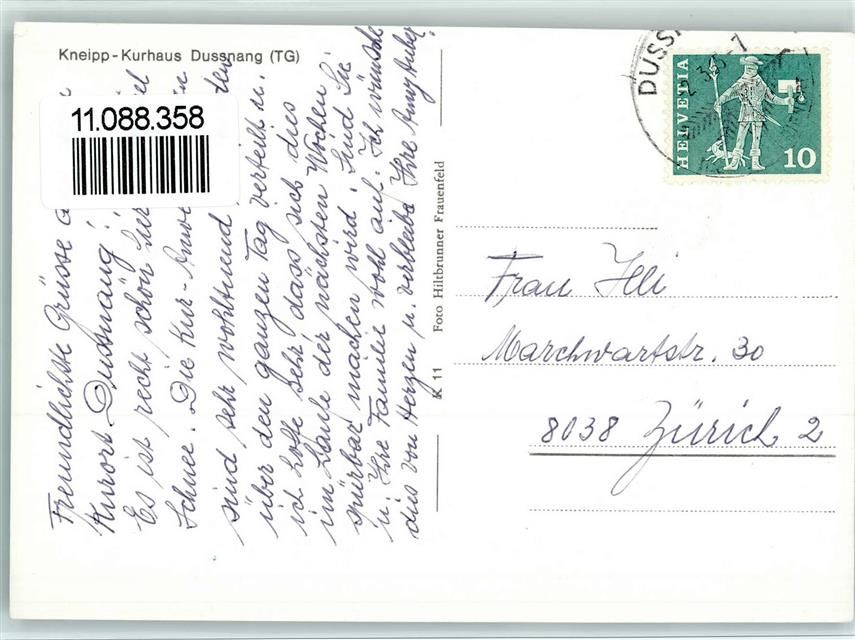 Kneipp-Kurhaus Dussnang (TG)
11.088.358
Freundlichste Grüsse
Kurort Dussnang!
Es ist recht schön hier
Schnee. Die Kur-Anwe ten
sind sehr wohltuend
über den ganzen Tag verteilt u.
ich hoffe sehr, dass sich dies
im Laufe der nächsten Wochen
spürbar machen wird. Sind Sie
u. Ihre Familie wohl auf. Ich wünsche
dies von Herzen u. verbleibe Ihre
K 11 Foto Hiltbrunner Frauenfeld
DUSS
HELVETIA
10
Frau Illi
Marchwartstr. 30
8038 Zürich 2